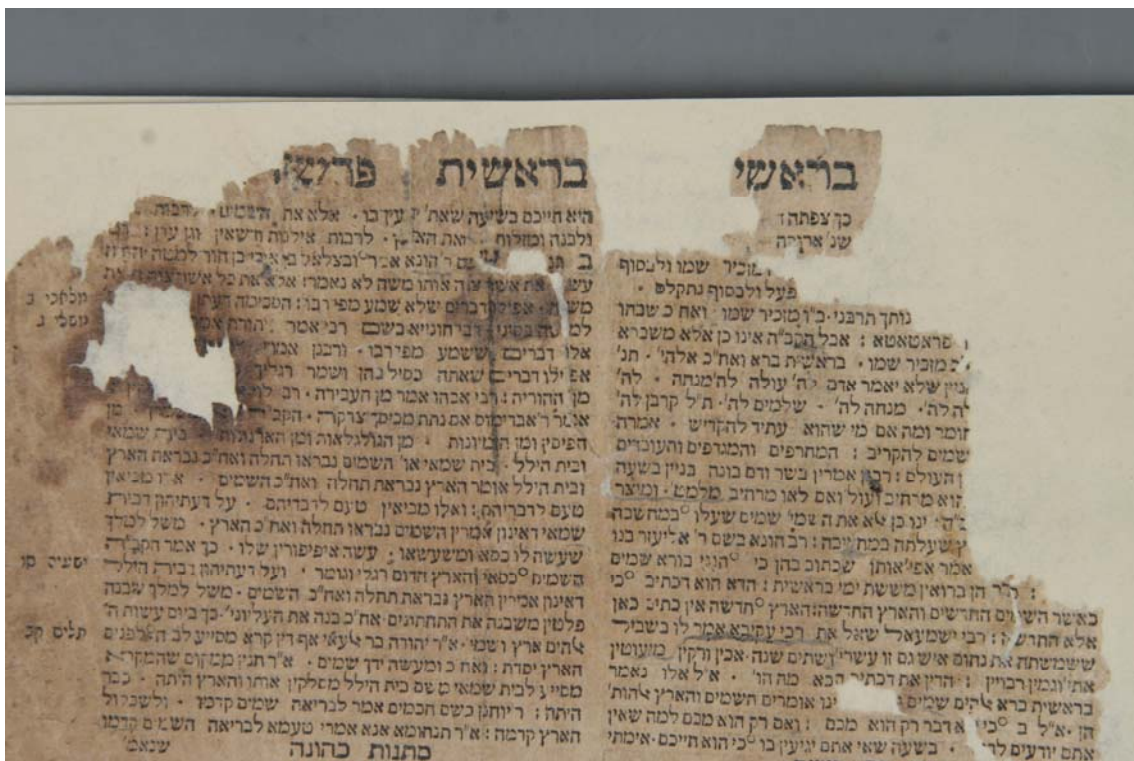 בראשי
כך צפתה
שג' ארוכה
מזכיר שמו ולבסוף
פעל ולבסוף נתקלס
נותך תרבני ב"ו מזכיר שמו ואח"כ שבחו
פראטאטא : אבל הקב"ה אינו כן אלא משברא
מזכיר שמו · בראשית ברא ואח"כ אלהי' · תנ'
מניין שלא יאמר אדם לה' עולה לה' מנחה · לה'
לה' · מנחה לה' · שלמים לה' · ת"ל קרבן לה'
חומר ומה אם מי שהוא עתיד להקדיש · אמרת
שמים להקריב : המחרפים והמגדפים והעובדים
העולם : רבנן אמרין בשר ודם בונה בניין בשעה
הוא מרחיב ועול ואם לאו מרחיב מלמט' ומיצר
ינו כן אלא את השמי' שמים שעלו במחשבה
שעלתה במחשבה : רב הונא בשם ר' אליעזר בנו
אמר אפי' אותן שכתוב בהן כי הנני בורא שמים
הרי הן ברואין מששת ימי בראשית : הדא הוא דכתיב כי
כאשר השמים החדשים והארץ החדשה : הארץ חדשה אין כתיב כאן
אלא החדשה : רבי ישמעאל שאל את רבי עקיבא אמר לו בשביל
ששמשתה את נחום איש גם זו עשרי' ושתים שנה · אכין ורקין מיעוטין
אתי' וגמין רבויין : הדין את דכתיב הכא מה הו' · א"ל אלו נאמר
בראשית ברא אלהים שמים ינו אומרים השמים והארץ אלהות'
הן · א"ל כי לא דבר רק הוא מכם : ואם רק הוא מכם למה שאין
אתם יודעים לדרוש · בשעה שאי אתם יגיעין בו כי הוא חייכם · אימתי
בראשית פרשה
היא חייכם בשעה שאת' יגיעין בו · אלא את השמים · לרבות
ולבנה ומזלות ואת הארץ · לרבות אילנות ודשאין וגן עדן :
ר' הונא אמר ובצלאל בן אורי בן חור למטה יהודה
עשה את אשר צוה אותו משה לא נאמר : אלא את כל אשר צוה את
משה · אפילו דברים שלא שמע מפי רבו : הסכימה דעתו
למשה בסיני : רבי חוניא בשם רבי אמר תורת אמת
אלו דברים ששמע מפי רבו · ורבנן אמרי
אפילו דברים שאתה כסיל בהן ושמר רגליך
מן ההוריה : רבי אבהו אמר מן העבירה · רב לוי
אומר ר' אבדימוס אם נתת מכיסך צדקה · הקב"ה
הפיסין ומן הזמיונות · מן הגולגלאות ומן הארנונות · בית שמאי
ובית הילל · בית שמאי או' השמים נבראו תחלה ואח"כ נבראת הארץ
ובית הילל אומר הארץ נבראת תחלה ואח"כ השמים · אלו מביאין
טעם לדבריהם : ואלו מביאין טעם לדבריהם · על דעתיהון דבית
שמאי דאינון אמרין השמים נבראו תחלה ואח"כ הארץ · משל למלך
שעשה לו כסא ומשעשאו עשה איפיפורין שלו · כך אמר הקב"ה
השמים כסאי והארץ הדום רגלי וגומר · ועל דעתיהון דבית הילל
דאינון אמרין הארץ נבראת תחלה ואח"כ השמים · משל למלך שבנה
פלטין משבנה את התחתונים · אח"כ בנה את העליוני' · כך ביום עשות ה'
אלהים ארץ ושמי' · א"ר יהודה בר אלעאי אף דין קרא מסייע לב
הארץ יסדת : ואח"כ ומעשה ידך שמים · א"ר חנין ממקום שהמקרא
מסייע לבית שמאי משם בית הילל מסלקין אותו והארץ היתה · כבר
היתה : ר' יוחנן בשם חכמים אמר לבריאה שמים קדמו · ולשכלול
הארץ קדמה : א"ר תנחומא אנא אמרי טעמא לבריאה השמים קדמו
שנאמ'
מתנות כהונה
מלאכי ב
משלי ג
ישעיה סו
תלים קב